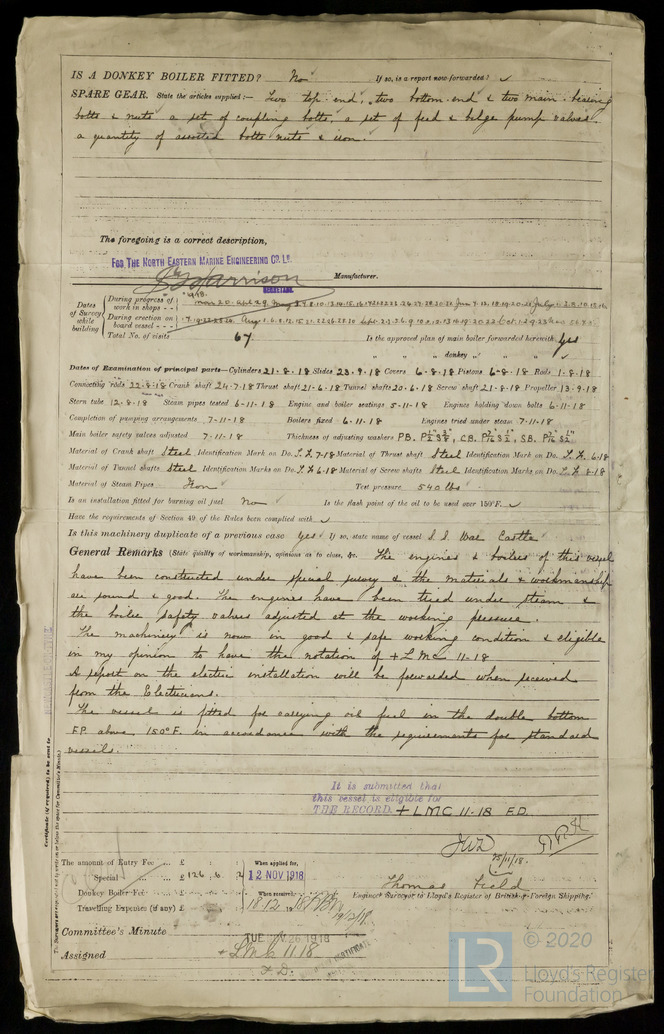 IS A DONKEY BOILER FITTED? No If so, is a report now forwarded? ✓
SPARE GEAR. State the articles supplied:— Two top end, two bottom end & two main bearing
bolts & nuts a set of coupling bolts, a set of feed & bilge pump valves
a quantity of assorted bolts nuts & iron.
The foregoing is a correct description,
FOR THE NORTH EASTERN MARINE ENGINEERING CO. LD.
Harrison Manufacturer.
SECRETARY.
Dates of Survey while building
During progress of work in shops - -
During erection on board vessel - - -
Total No. of visits 67
Is the approved plan of main boiler forwarded herewith Yes
" " " donkey " " " ✓
Dates of Examination of principal parts—Cylinders 21.8.18 Slides 23.9.18 Covers 6.8.18 Pistons 6.8.18 Rods 1.8.18
Connecting rods 22.8.18 Crank shaft 24.7.18 Thrust shaft 21.6.18 Tunnel shafts 20.6.18 Screw shaft 21.8.18 Propeller 13.9.18
Stern tube 12.8.18 Steam pipes tested 6.11.18 Engine and boiler seatings 5.11.18 Engines holding down bolts 6.11.18
Completion of pumping arrangements 7.11.18 Boilers fixed 6.11.18 Engines tried under steam 7.11.18
Main boiler safety valves adjusted 7.11.18 Thickness of adjusting washers P.B. C.B. S.B.
Material of Crank shaft Steel Identification Mark on Do. 7.18 Material of Thrust shaft Steel Identification Mark on Do. 6.18
Material of Tunnel shafts Steel Identification Marks on Do. 6.18 Material of Screw shafts Steel Identification Marks on Do. 8.18
Material of Steam Pipes Iron ✓ Test pressure 540 lbs ✓
Is an installation fitted for burning oil fuel No ✓ Is the flash point of the oil to be used over 150°F. ✓
Have the requirements of Section 49 of the Rules been complied with ✓
Is this machinery duplicate of a previous case Yes If so, state name of vessel S.S. War Castle
General Remarks (State quality of workmanship, opinions as to class, &c. The engines & boilers of this vessel
have been constructed under special survey & the materials & workmanship
are sound & good. The engines have been tried under steam &
the boiler safety valves adjusted at the working pressure.
The machinery is now in good & safe working condition & eligible
in my opinion to have the notation of + LMC 11-18
A report on the electric installation will be forwarded when received
from the Electricians.
The vessel is fitted for carrying oil fuel in the double bottom
F.P. above 150°F. in accordance with the requirements for standard
vessels.
It is submitted that
this vessel is eligible for
THE RECORD. + LMC 11.18 F.D.
25/11/18.
The amount of Entry Fee .. £ : :
Special .. £ 126 : 6 :
Donkey Boiler Fee .. £ : :
Travelling Expenses (if any) £ : :
When applied for,
12 NOV 1918
When received,
18.12.18
19/12/18
Thomas Field
Engineer Surveyor to Lloyd's Register of British & Foreign Shipping.
Committee's Minute TUE. NOV. 26 1918
Assigned + LMC 11.18
F.D.
© 2020
LR
Lloyd's Register
Foundation